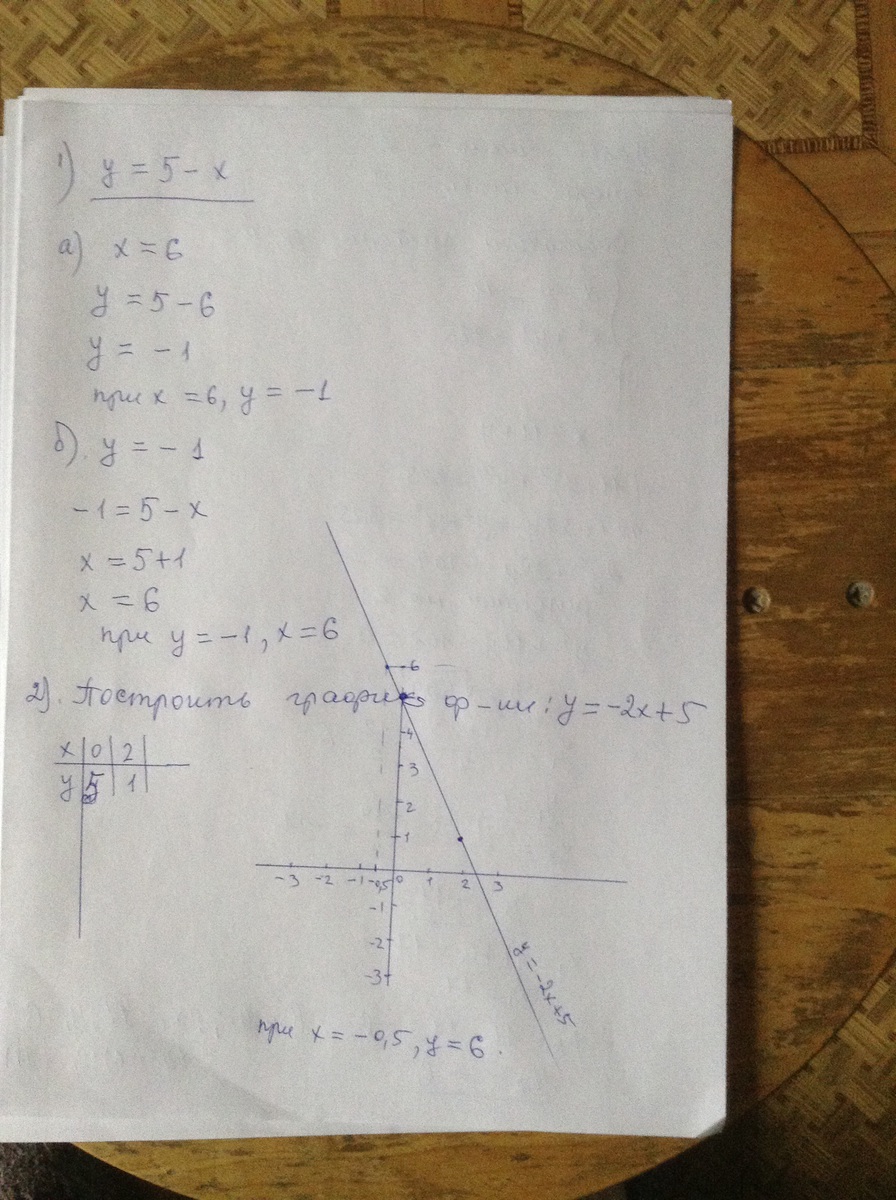 1) y = 5 - x
а) x = 6
y = 5 - 6
y = -1
при x = 6, y = -1
б). y = -1
-1 = 5 - x
x = 5+1
x = 6
при y = -1, x = 6
6
2). Построить график ф-ии: y = -2x+5
x 0 2
y 5 1
4
3
2
1
-3 -2 -1 -0,5 0 1 2 3
-1
-2
-3
y = -2x+5
при x = -0,5, y = 6.